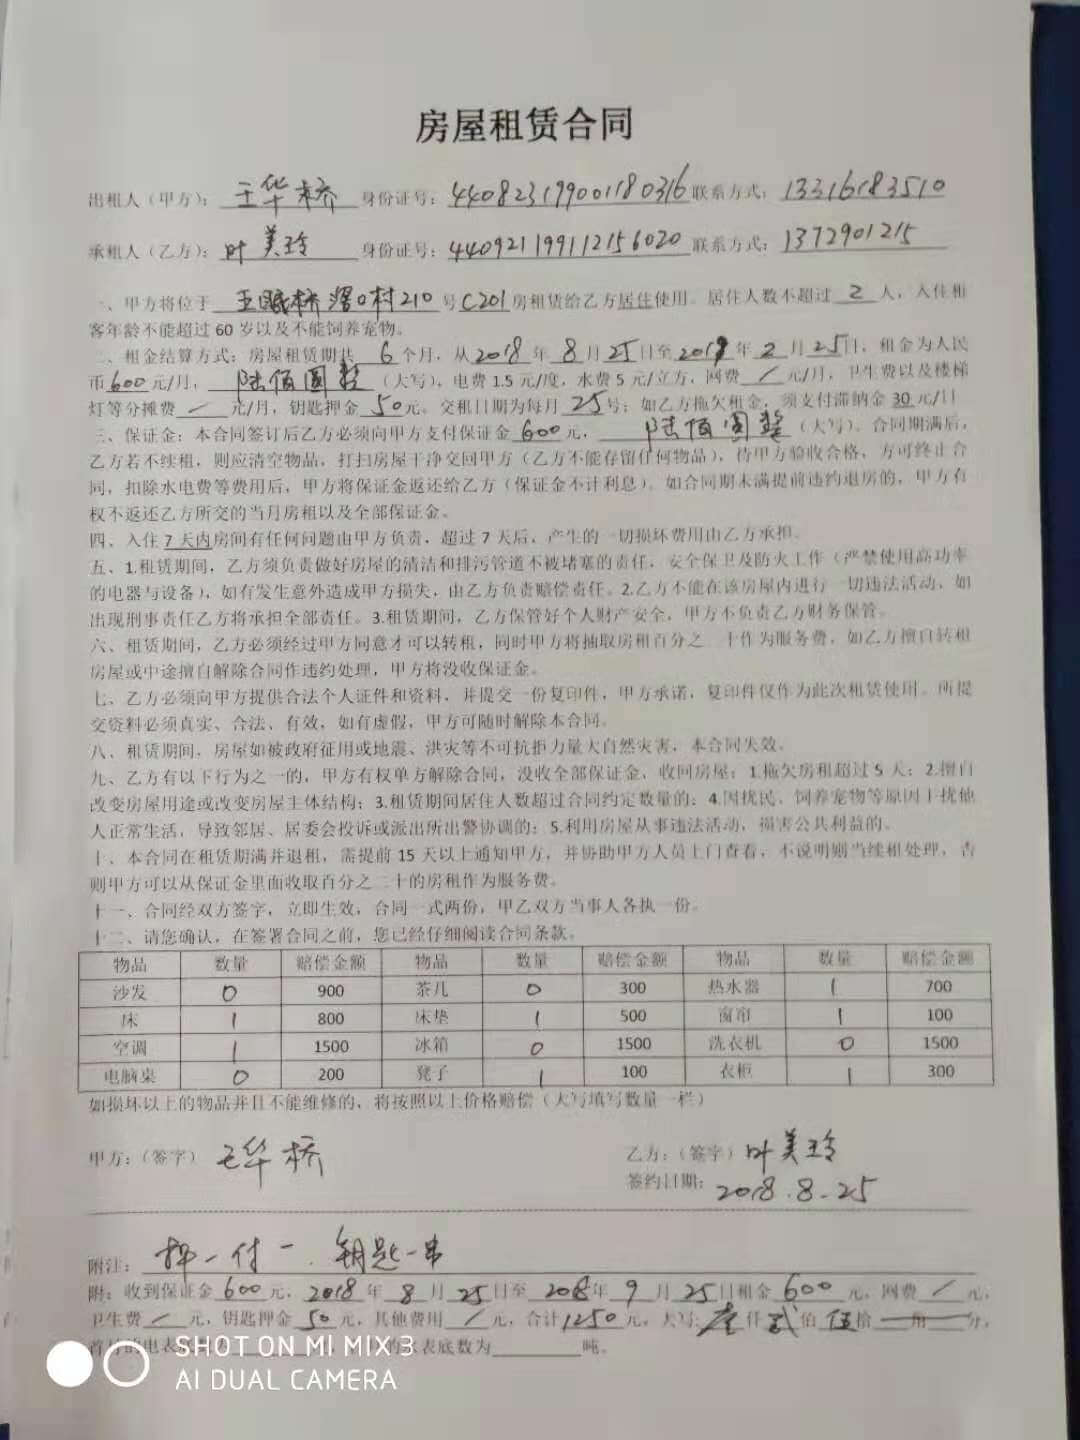 房屋租赁合同
出租人（甲方）：王华桥 身份证号：440823199001180316 联系方式：13316183510
承租人（乙方）：叶美玲 身份证号：440921199112156020 联系方式：1372901215
一、甲方将位于 村210号C201房租赁给乙方居住使用。居住人数不超过 2 人，入住租
客年龄不能超过 60 岁以及不能饲养宠物。
二、租金结算方式：房屋租赁期共 6 个月，从2018年 8 月25日至2019年 2 月 25日，租金为人民
币600元/月，陆佰圆整（大写），电费 1.5 元/度，水费 5 元/立方，网费 / 元/月，卫生费以及楼梯
灯等分摊费 / 元/月，钥匙押金 50元。交租日期为每月 25号；如乙方拖欠租金，须支付滞纳金 30 元/日
三、保证金：本合同签订后乙方必须向甲方支付保证金 600 元，陆佰圆整（大写）。合同期满后，
乙方若不续租，则应清空物品，打扫房屋干净交回甲方（乙方不能存留任何物品），待甲方验收合格，方可终止合
同，扣除水电费等费用后，甲方将保证金返还给乙方（保证金不计利息）。如合同期未满提前违约退房的，甲方有
权不返还乙方所交的当月房租以及全部保证金。
四、入住 7 天内房间有任何问题由甲方负责，超过 7 天后，产生的一切损坏费用由乙方承担。
五、1.租赁期间，乙方须负责做好房屋的清洁和排污管道不被堵塞的责任，安全保卫及防火工作（严禁使用高功率
的电器与设备），如有发生意外造成甲方损失，由乙方负责赔偿责任。2.乙方不能在该房屋内进行一切违法活动，如
出现刑事责任乙方将承担全部责任。3.租赁期间，乙方保管好个人财产安全，甲方不负责乙方财务保管。
六、租赁期间，乙方必须经过甲方同意才可以转租，同时甲方将抽取房租百分之二十作为服务费，如乙方擅自转租
房屋或中途擅自解除合同作违约处理，甲方将没收保证金。
七、乙方必须向甲方提供合法个人证件和资料，并提交一份复印件，甲方承诺，复印件仅作为此次租赁使用。所提
交资料必须真实、合法、有效，如有虚假，甲方可随时解除本合同。
八、租赁期间，房屋如被政府征用或地震、洪灾等不可抗拒力量大自然灾害，本合同失效。
九、乙方有以下行为之一的，甲方有权单方解除合同，没收全部保证金，收回房屋：1.拖欠房租超过 5 天；2.擅自
改变房屋用途或改变房屋主体结构；3.租赁期间居住人数超过合同约定数量的；4.因扰民、饲养宠物等原因干扰他
人正常生活，导致邻居、居委会投诉或派出所出警协调的；5.利用房屋从事违法活动，损害公共利益的。
十、本合同在租赁期满并退租，需提前 15 天以上通知甲方，并协助甲方人员上门查看，不说明则当续租处理，否
则甲方可以从保证金里面收取百分之二十的房租作为服务费。
十一、合同经双方签字，立即生效，合同一式两份，甲乙双方当事人各执一份。
十二、请您确认，在签署合同之前，您已经仔细阅读合同条款。
物品 数量 赔偿金额 物品 数量 赔偿金额 物品 数量 赔偿金额
沙发 0 900 茶几 0 300 热水器 1 700
床 1 800 床垫 1 500 窗帘 1 100
空调 1 1500 冰箱 0 1500 洗衣机 0 1500
电脑桌 0 200 凳子 1 100 衣柜 1 300
如损坏以上的物品并且不能维修的，将按照以上价格赔偿（大写填写数量一栏）
甲方：（签字）王华桥 乙方：（签字）叶美玲
签约日期：2018.8.25
附注：押一付一．钥匙一串
附：收到保证金 600 元，2018 年 8 月 25日至 2018年 9 月 25日租金 600 元，网费 / 元，
卫生费 / 元，钥匙押金 50 元，其他费用 / 元，合计1250元，大写：壹仟贰佰伍拾 角 分，
首月的电表 表底数为 吨。
SHOT ON MI MIX 3
AI DUAL CAMERA